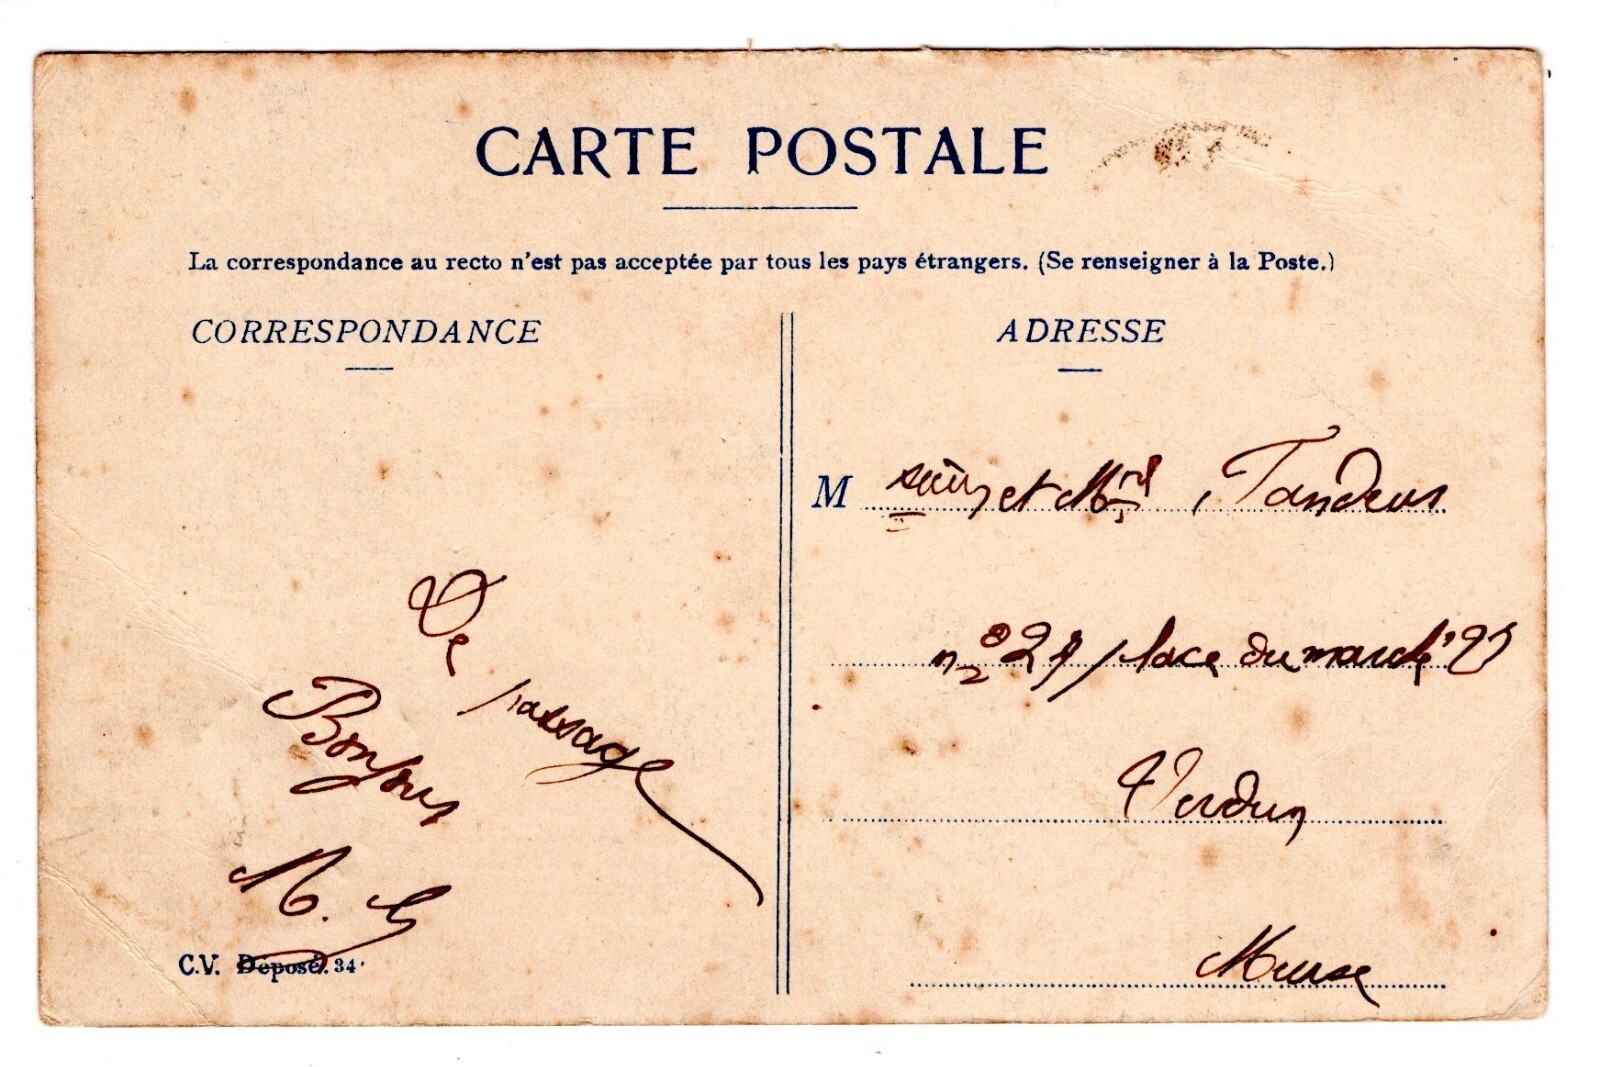 CARTE POSTALE
La correspondance au recto n'est pas acceptée par tous les pays étrangers. (Se renseigner à la Poste.)
CORRESPONDANCE
De passage
Bonjour
M. G
C.V. Déposé. 34
ADRESSE
M et
place du marché
Verdun
Meuse